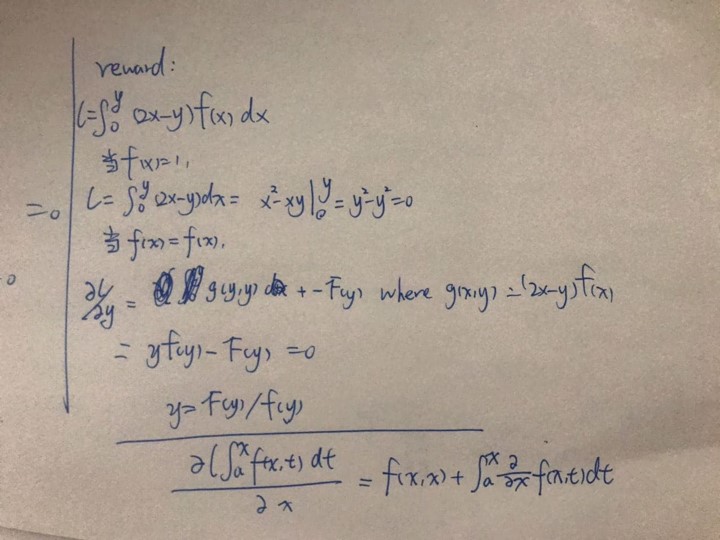 reward:
l=∫₀^y (2x-y)f(x) dx
当f(x)=1,
l= ∫₀^y (2x-y)dx = x²-xy|₀^y = y²-y²=0
=0
当f(x)=f(x),
0
∂l/∂y = g(y,y) + -F(y) where g(x,y) = (2x-y)f(x)
= yf(y) - F(y) =0
y= F(y)/f(y)
∂(∫ₐ^x f(x,t) dt / ∂x = f(x,x) + ∫ₐ^x ∂/∂x f(x,t)dt